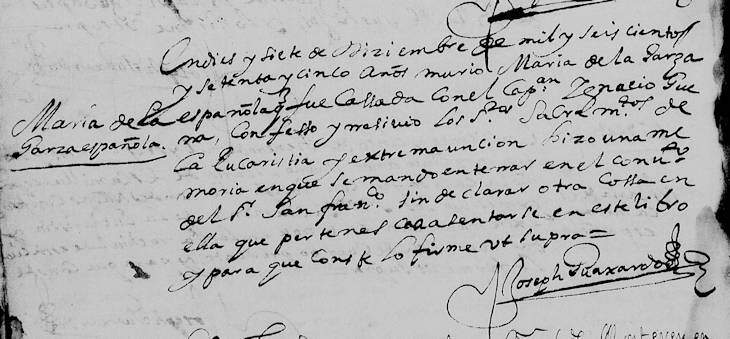 En dies y siete de Diziembre de mil y seis cientos
y setenta y cinco Años murio Maria de la Garza
española q fue Cassada con el Capan Ygnacio Gue
rra, Confesso y ressivio los Stos Sacramtos de
la Eucaristia y extremauncion hizo una me
moria en que se mando enterrar en el Convto
del Sr San franco sin declarar otra Cossa en
ella que pertenesca asentarse en este libro
y para que Conste lo firme ut supra=
Maria de la
Garza española.
Joseph Guaxardo